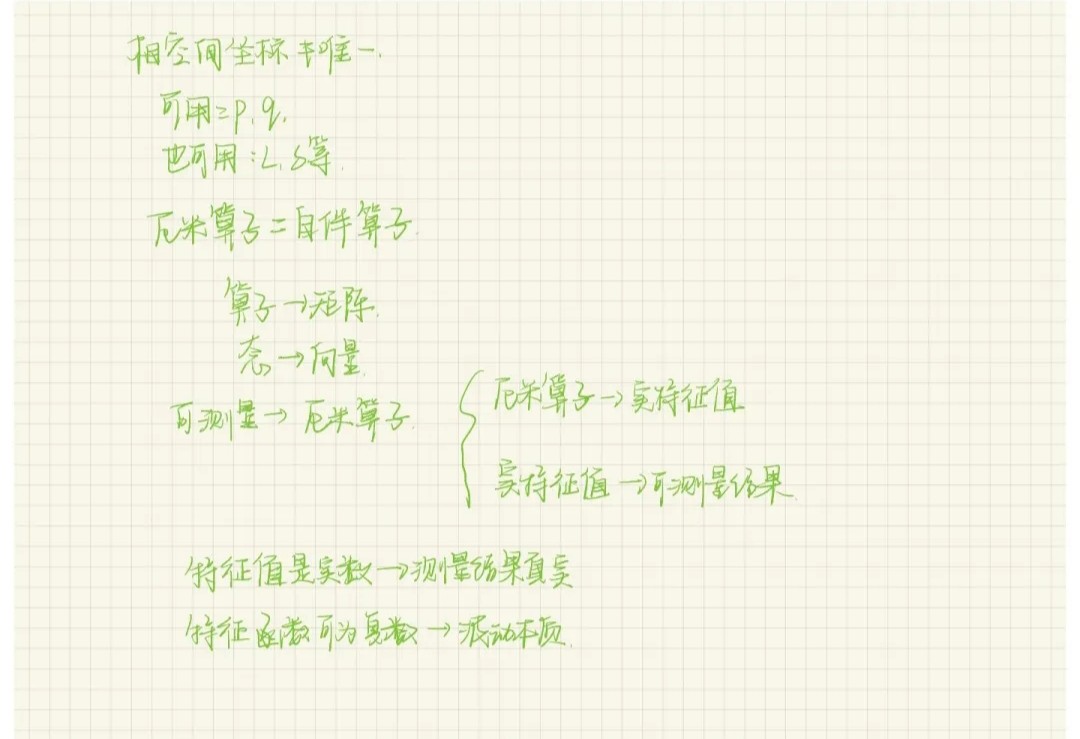 相空间坐标非唯一.
可用：p,q,
也可用：L,S等.
厄米算子=自伴算子.
算子→矩阵.
态→向量.
可测量→厄米算子.
厄米算子→实特征值
实特征值→可测量结果.
特征值是实数→测量结果真实
特征函数可为复数→波动本质.